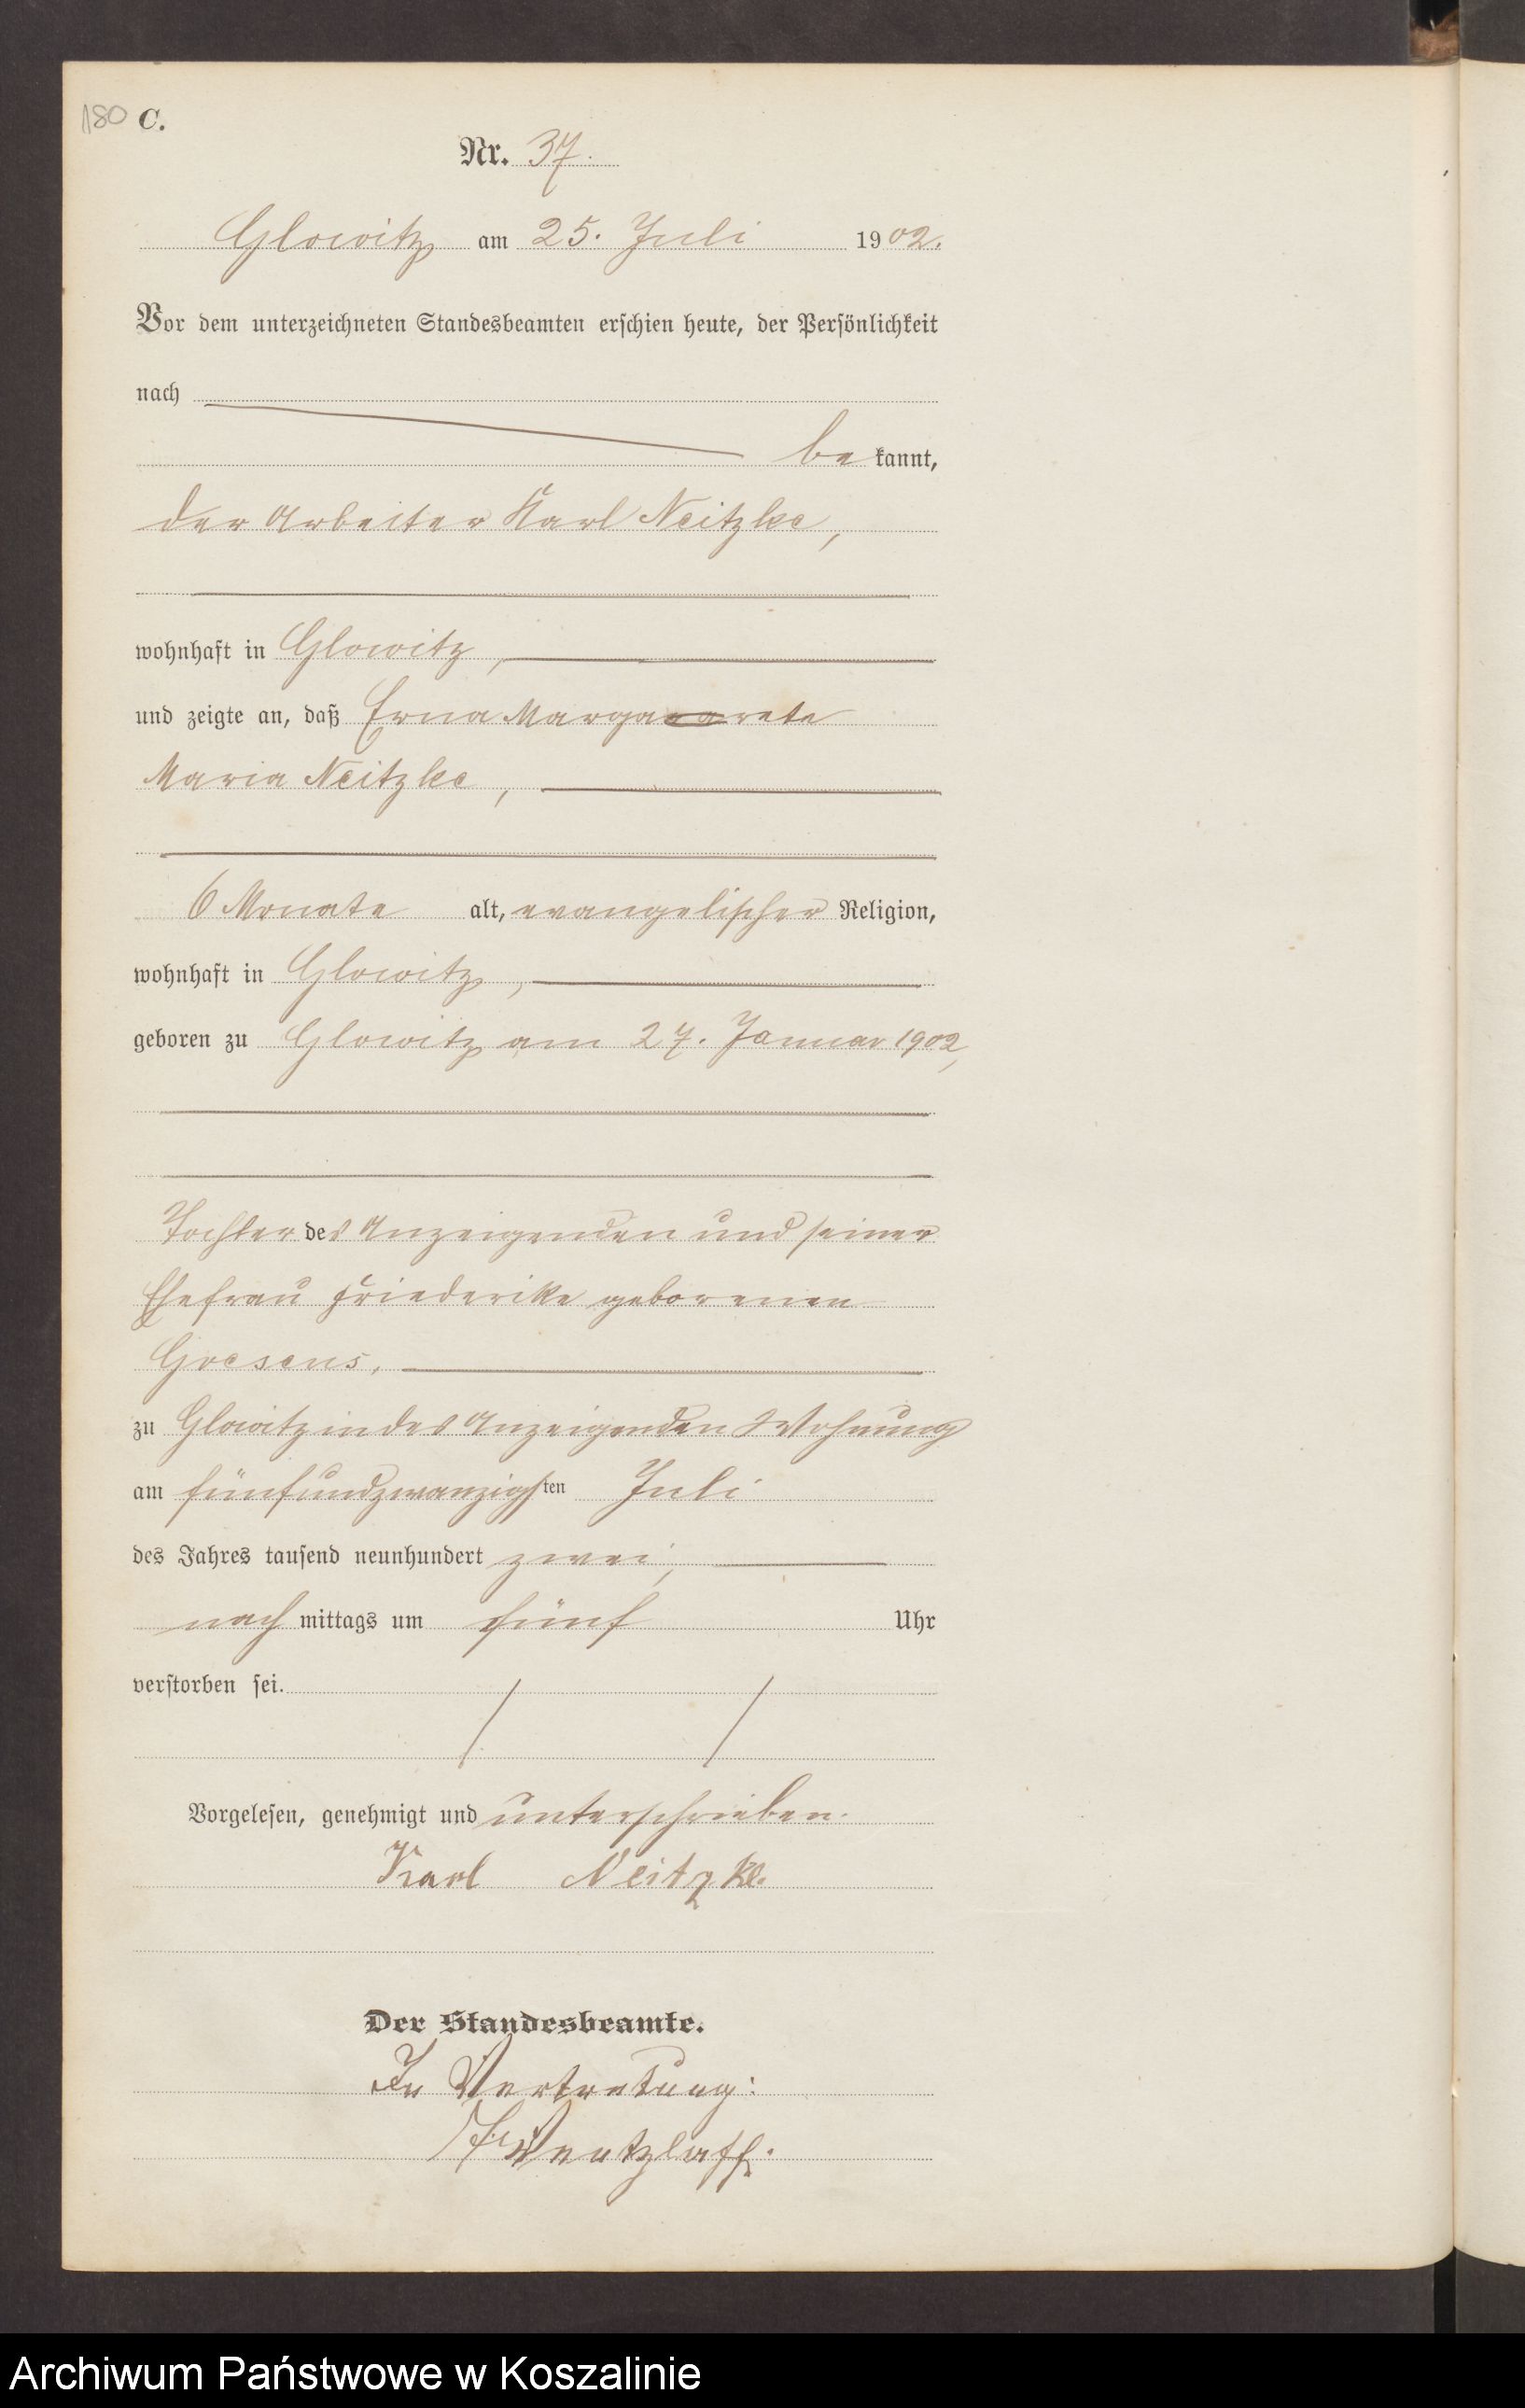 180 C.
Nr. 37.
Glowitz am 25. Juli 1902.
Vor dem unterzeichneten Standesbeamten erschien heute, der Persönlichkeit
nach
be kannt,
der Arbeiter Karl Neitzke,
wohnhaft in Glowitz,
und zeigte an, daß Erna Margarete
Maria Neitzke,
6 Monate alt, evangelischer Religion,
wohnhaft in Glowitz,
geboren zu Glowitz am 27. Januar 1902,
Tochter des Anzeigenden und seiner
Ehefrau Friederike geborenen
zu Glowitz in des Anzeigenden Wohnung
am fünfundzwanzigsten Juli
des Jahres tausend neunhundert zwei,
nach mittags um fünf Uhr
verstorben sei.
Vorgelesen, genehmigt und unterschrieben.
Karl Neitzke.
Der Standesbeamte.
In Vertretung:
Wentzlaff.
Archiwum Państwowe w Koszalinie